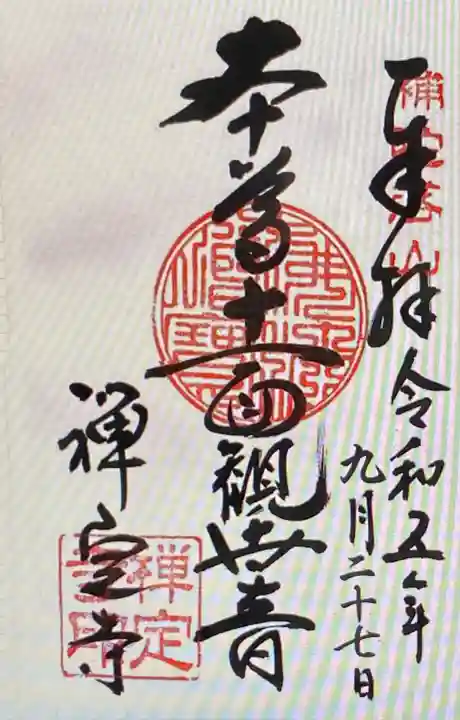 奉拝 令和五年
九月二十七日
本尊十一面観世音
禅定寺
補陀落山
禅定